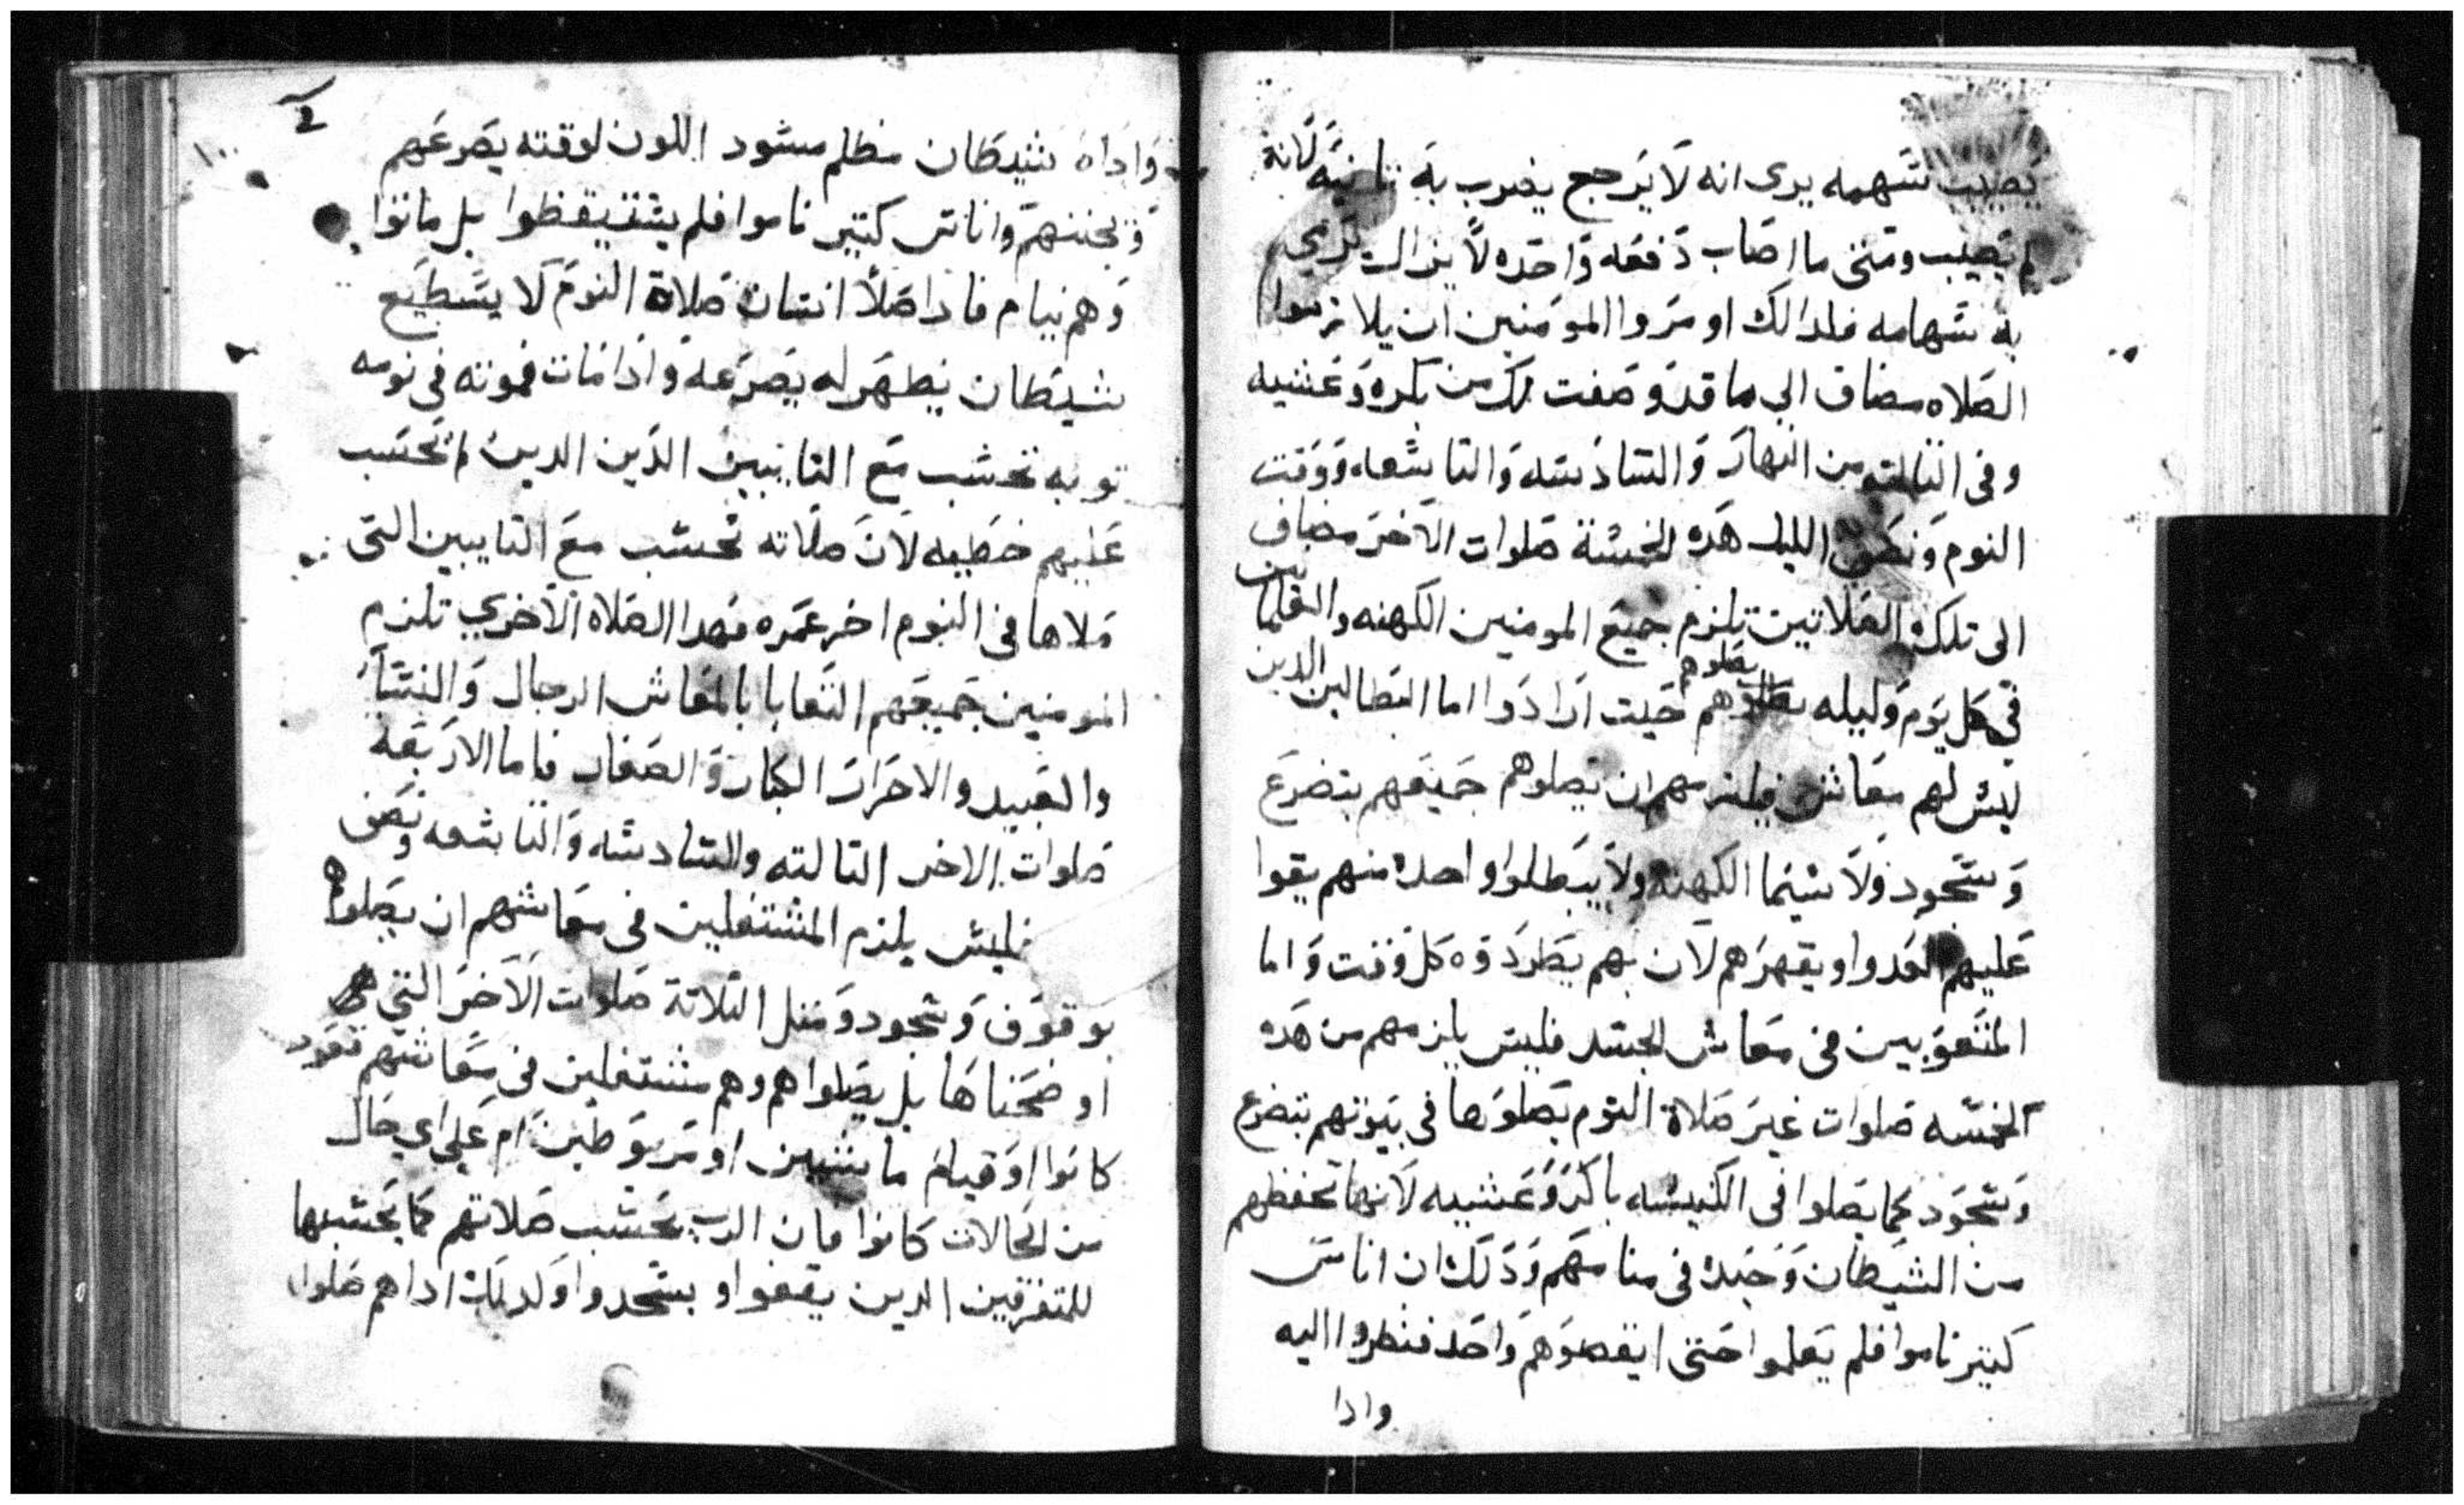 يصيب سهمه يرى انه لا يرجع يضرب به تانيه لانه
لم يصيب ومتى ما اصاب دفعه واحده لا يزال يرمي
به سهامه فلدالك اومروا المومنين ان يلازموا
الصلاه مضاف الى ما قد وصفت لك من بكره وعشيه
وفي التالته من النهار والسادسه والتاسعه ووقت
النوم ونصف الليل هده الخمسة صلوات الاخر مضاف
الى تلك الصلاتين تلزم جميع المومنين الكهنه والعلمانيين
في كل يوم وليله يصلوهم حيت ارادوا اما البطالين الدين
ليس لهم معاش فيلزمهم ان يصلوهم جميعهم بتضرع
وسجود ولا سيما الكهنه ولا يبطلوا واحده منهم يقوا
عليهم العدوا ويقهرهم لان بهم يطردوه كل وقت واما
المتعوبين في معاش الجسد فليس يلزمهم من هده
الخمسه صلوات غير صلاة النوم يصلوها في بيوتهم بتضرع
وسجود كما يصلوا في الكنيسه باكر وعشيه لانها تحفظهم
من الشيطان وجنده في منامهم ودلك ان اناس
كتير ناموا فلم يعلموا حتى ايقضوهم واحد فنظروا اليه
وادا
2
١٠٠
واداه شيطان مظلم مسود اللون لوقته يصرعهم
ويجننهم واناس كتير ناموا فلم يستيقظوا بل ماتوا
وهم نيام فادا صلا انسان صلاة النوم لا يسطيع
شيطان يظهر له يصرعه وادا مات فموته في نومه
توبه تحسب مع التايبين الدين الدين لم تحسب
عليهم خطيه لان صلاته تحسب مع التايبين التى
صلاها في النوم اخر عمره فهدا الصلاه الاخري تلزم
المومنين جميعهم التعابا بالمعاش الرجال والنسا
والعبيد والاحرار الكبار والصغار فاما الاربعه
صلوات الاخر التالته والسادسه والتاسعه ونصف
فليس يلزم المشتغلين في معاشهم ان يصلوهم
بوقوف وسجود ومتل التلاتة صلوات الاخر التي
اوضحناها بل يصلواهم وهم مشتغلين في معاشهم قعود
كانوا او قيام ماشيين او مربوطين ام على اي حال
من الحالات كانوا فان الرب يحسب صلاتهم كما يحسبها
للمتفرغين الدين يقفوا ويسجدوا ولدلك اداهم صلوا